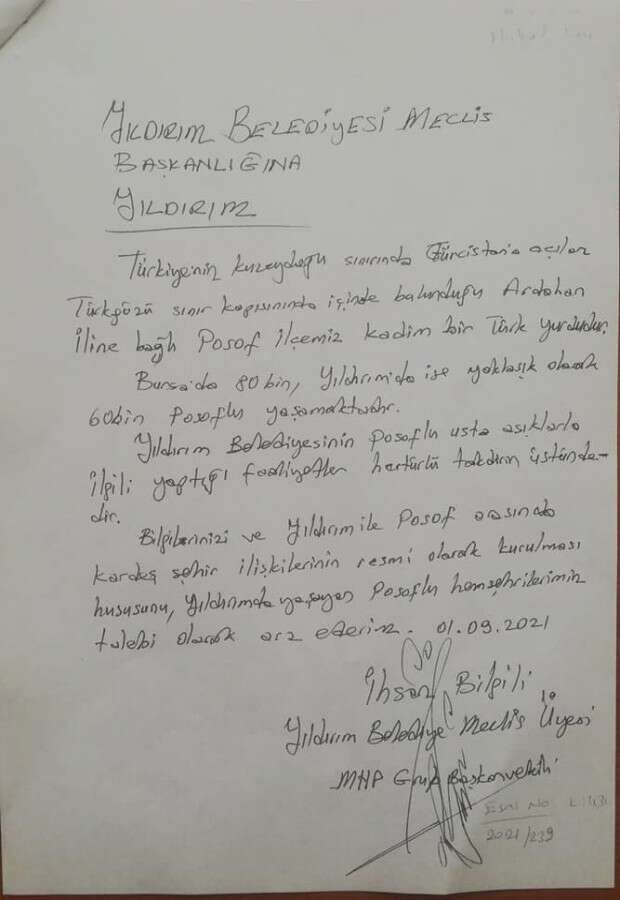 YILDIRIM BELEDİYESİ MECLİS
BAŞKANLIĞINA
YILDIRIM
Türkiye'nin kuzeydoğu sınırında Gürcistan'a açılan
Türkgözü sınır kapısınında içinde bulunduğu Ardahan
İline bağlı Posof ilçemiz kadim bir Türk yurdudur.
Bursa'da 80 bin, Yıldırım'da ise yaklaşık olarak
60 bin Posoflu yaşamaktadır.
Yıldırım Belediyesinin Posoflu usta aşıklarla
ilgili yaptığı faaliyetler hertürlü takdirin üstünde-
dir.
Bilgilerinizi ve Yıldırım ile Posof arasında
kardeş şehir ilişkilerinin resmi olarak kurulması
hususunu, Yıldırımda yaşayan Posoflu hemşehrilerimin
talebi olarak arz ederim. 01.09.2021
İhsan Bilgili
Yıldırım Belediye Meclis Üyesi
MHP Grup Başkanvekili
ESAS NO
2021/239